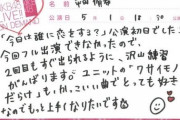 AKB48 LIVE!! ON DEMAND
5 1 18 30
「今日は誰に恋をする?」公演初日でした♪
今回フル出演できなかったので、
2回目もすぐ出れるように、沢山練習
がんばります!! ユニットの"ワサイモン
だらけ"も、かっこいい曲でとっても好き
なのでもっと上手くなりたいです